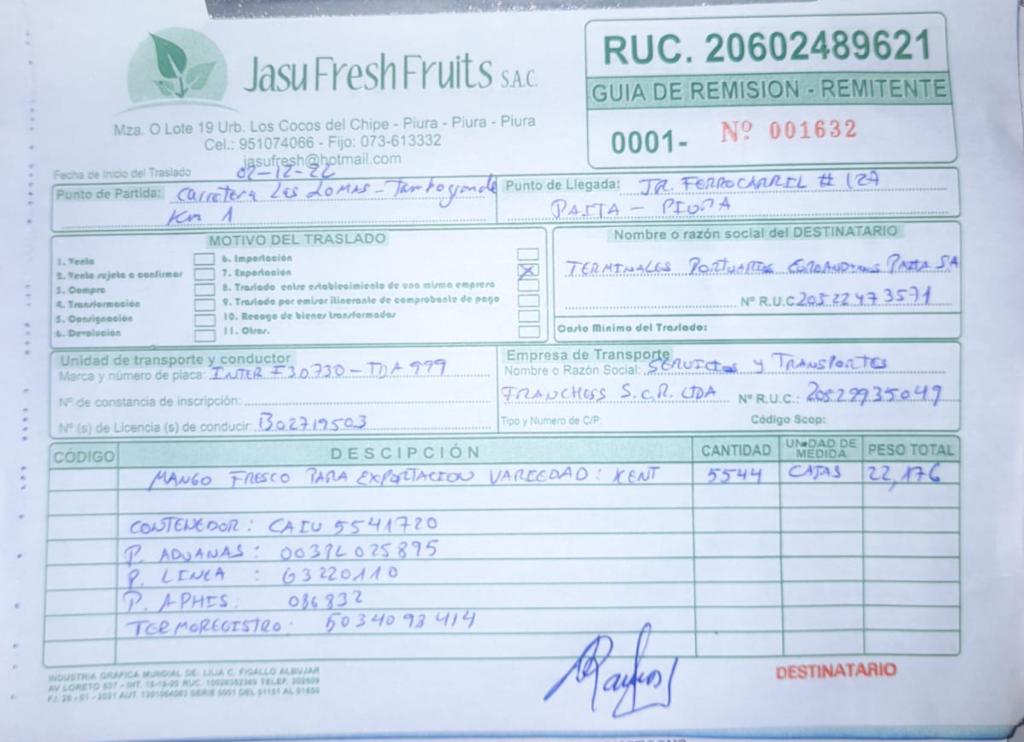 Jasu Fresh Fruits S.A.C.
Mza. O Lote 19 Urb. Los Cocos del Chipe - Piura - Piura - Piura
Cel.: 951074066 - Fijo: 073-613332
jasufresh@hotmail.com
RUC. 20602489621
GUIA DE REMISION - REMITENTE
0001- Nº 001632
Fecha de Inicio del Traslado 02-12-22
Punto de Partida: Carretera Las LOMAS - Tambogrande
Km 1
Punto de Llegada: JR. FERROCARRIL # 127
PAITA - PIURA
MOTIVO DEL TRASLADO
1. Venta
2. Venta sujeta a confirmar
3. Compra
4. Transformación
5. Consignación
6. Devolución
6. Importación
7. Exportación X
8. Traslado entre establecimiento de una misma empresa
9. Traslado por emisor itinerante de comprobante de pago
10. Recogo de bienes transformados
11. Otros.
Nombre o razón social del DESTINATARIO
TERMINALES PORTUARIOS EUROANDINOS PAITA SA
Nº R.U.C 20522473571
Costo Mínimo del Traslado:
Unidad de transporte y conductor
Marca y número de placa: INTER F30730 - TDA 979
Nº de constancia de inscripción:
Nº (s) de Licencia (s) de conducir: B02719503
Empresa de Transporte
Nombre o Razón Social: SERVICIOS y TRANSPORTES
FRANCHESS S.C.R. LTDA Nº R.U.C.: 20529935049
Tipo y Numero de C/P: Código Scop:
CÓDIGO DESCIPCIÓN CANTIDAD UNIDAD DE MEDIDA PESO TOTAL
MANGO FRESCO PARA EXPORTACION VARIEDAD: KENT 5544 CAJAS 22,176
CONTENEDOR: CAIU 5541720
P. ADUANAS: 0032L025895
P. LINEA : G3220110
P. APHIS. 086832
TERMOREGISTRO: 5034093414
INDUSTRIA GRAFICA MUNDIAL DE: LILIA C. FIGALLO ALBUJAR
DESTINATARIO